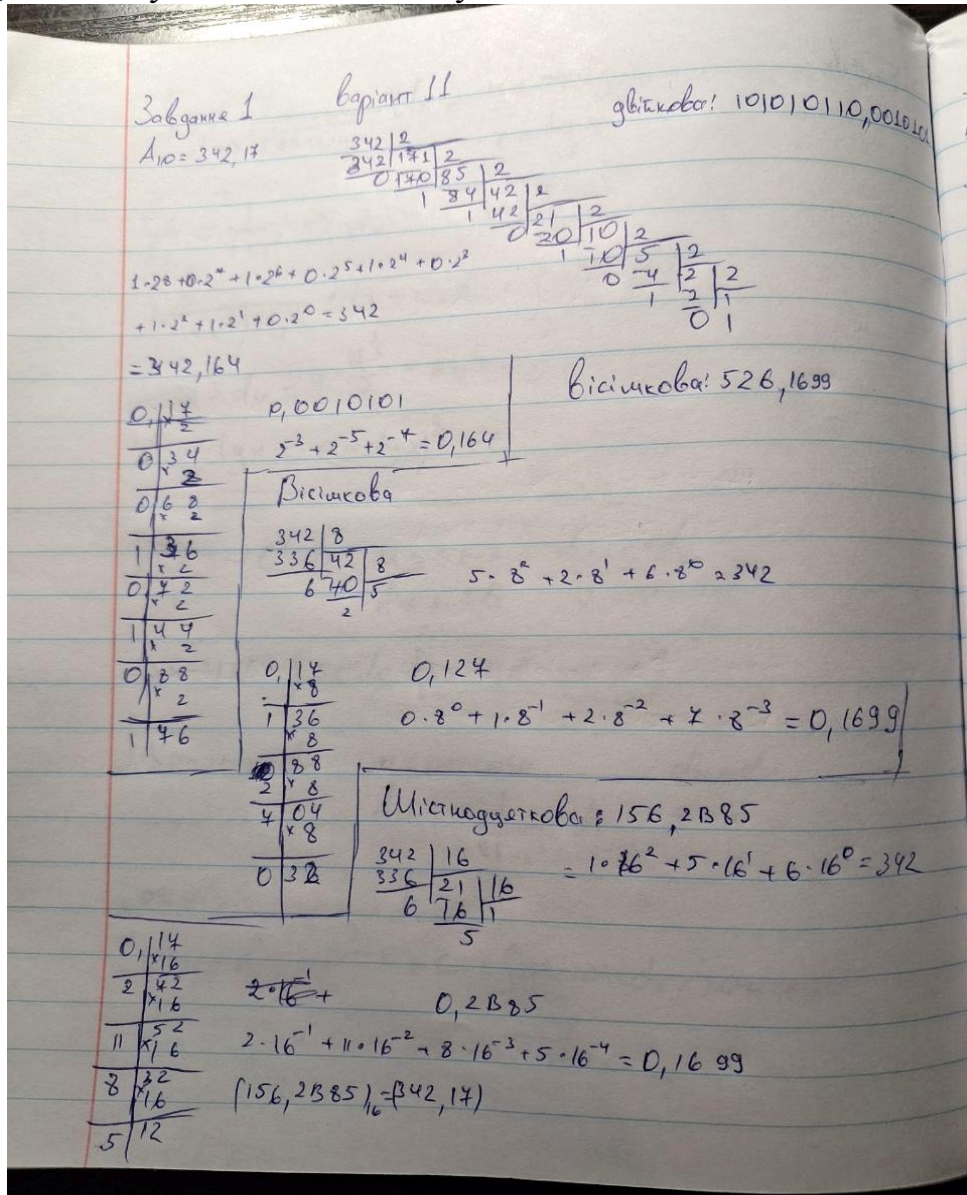 Завдання 1 варіант 11 двійкова: 101010110,0010101
A10 = 342,17
342 | 2
342 | 171 | 2
0 170 | 85 | 2
1 84 | 42 | 2
1 42 | 21 | 2
0 20 | 10 | 2
1 10 | 5 | 2
0 4 | 2 | 2
1 2 | 1
0 1
1·28 + 0·2⁷ + 1·2⁶ + 0·2⁵ + 1·2⁴ + 0·2³
+ 1·2² + 1·2¹ + 0·2⁰ = 342
= 342,164
вісімкова: 526,1699
0, | 17
× 2
0 | 34
× 2
0 | 68
× 2
1 | 36
× 2
0 | 72
× 2
1 | 44
× 2
0 | 88
× 2
1 | 76
0,0010101
2⁻³ + 2⁻⁵ + 2⁻⁷ = 0,164
Вісімкова
342 | 8
336 | 42 | 8
6 40 | 5
2
5·8² + 2·8¹ + 6·8⁰ = 342
0, | 17
× 8
1 | 36
× 8
2 | 88
× 8
7 | 04
× 8
0 | 32
0,127
0·8⁰ + 1·8⁻¹ + 2·8⁻² + 7·8⁻³ = 0,1699
Шістнодцяткова: 156,2B85
342 | 16
336 | 21 | 16
6 16 | 1
5
= 1·16² + 5·16¹ + 6·16⁰ = 342
0, | 17
× 16
2 | 72
× 16
11 | 52
× 16
8 | 32
× 16
5 | 12
2·16⁻¹ +
0,2B85
2·16⁻¹ + 11·16⁻² + 8·16⁻³ + 5·16⁻⁴ = 0,1699
(156,2B85)₁₆ = (342,17)